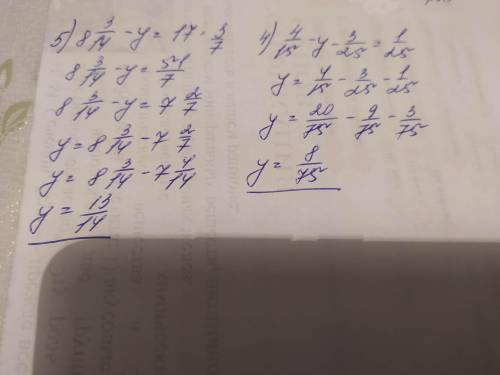 5) 8 3/14 - y = 17 · 3/7
8 3/14 - y = 51/7
8 3/14 - y = 7 2/7
y = 8 3/14 - 7 2/7
y = 8 3/14 - 7 4/14
y = 13/14
4) 4/15 - y - 3/25 = 1/25
y = 4/15 - 3/25 - 1/25
y = 20/75 - 9/75 - 3/75
y = 8/75